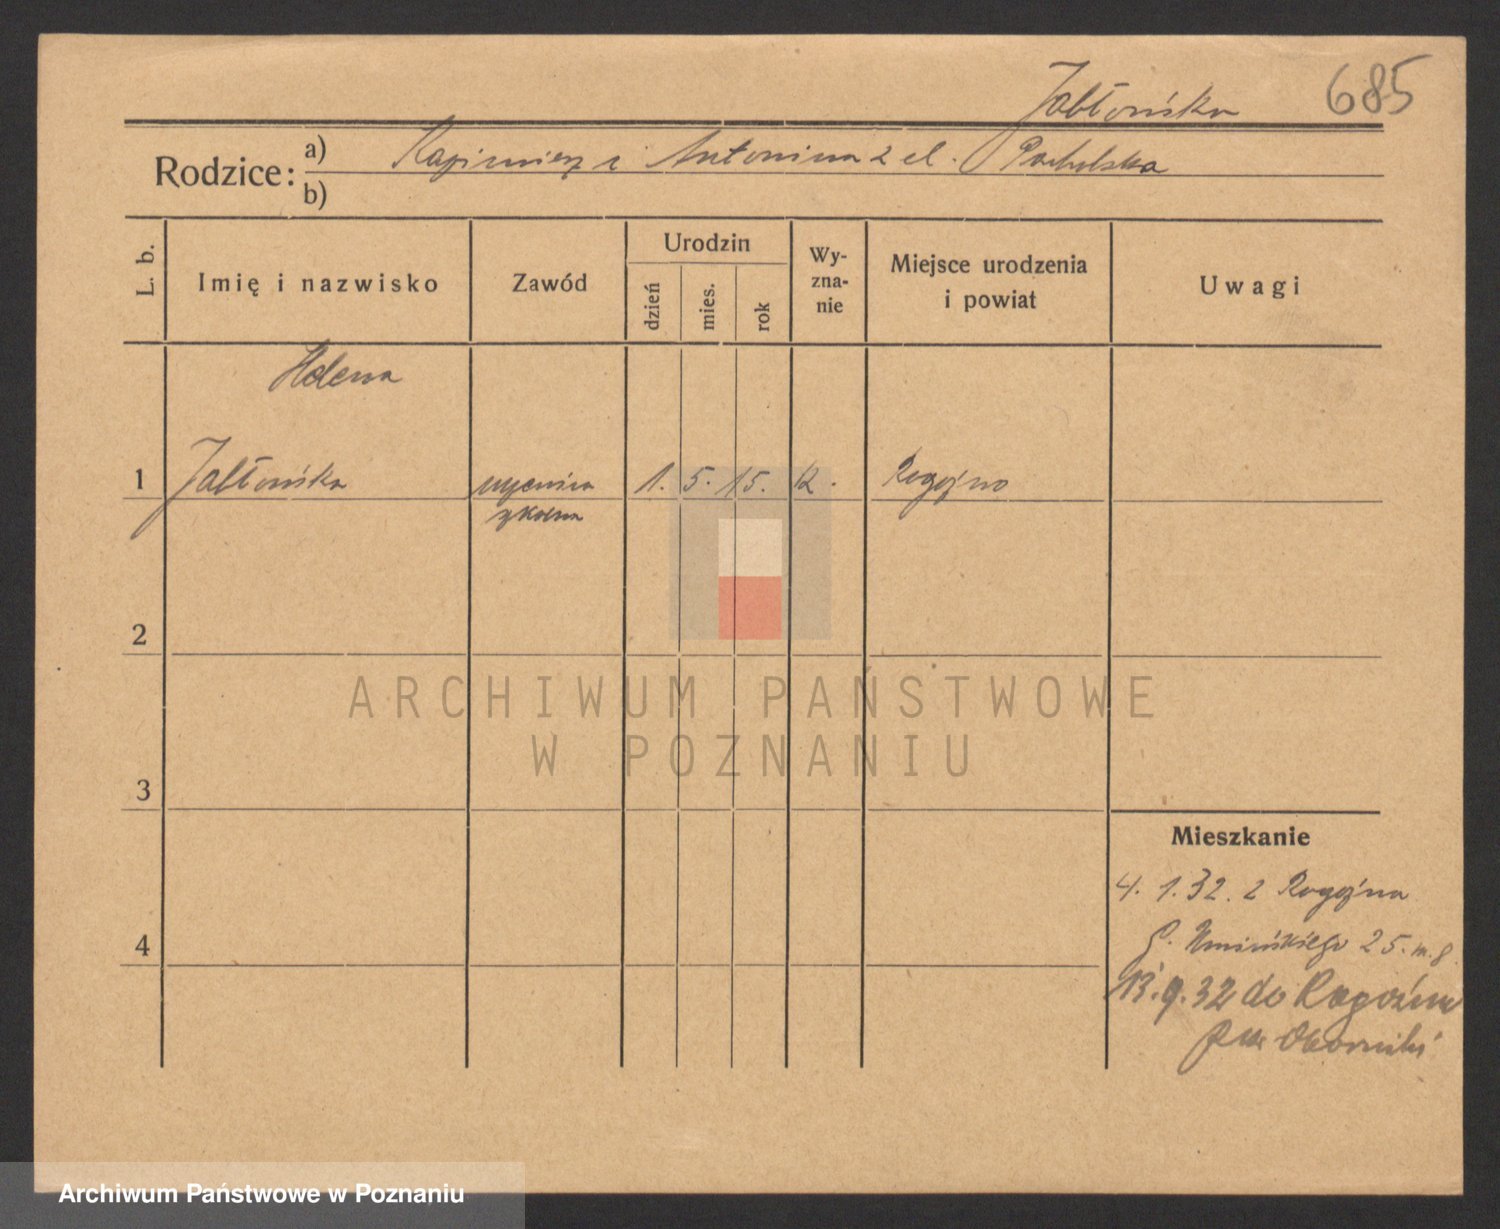 Jabłońska 685
Rodzice: a) Kazimierz i Antonina z d. Pacholska
b)
L. b. Imię i nazwisko Zawód Urodzin dzień mies. rok Wy-zna-nie Miejsce urodzenia i powiat Uwagi
Helena
1 Jabłońska uczenica 1. 5. 15. k. Rogoźno
szkolna
2
ARCHIWUM PAŃSTWOWE
W POZNANIU
3
Mieszkanie
4. 1. 32. z Rogoźna
G. Umińskiego 25. m. 8.
4
13. 9. 32 do Rogoźna
pow Oborniki
Archiwum Państwowe w Poznaniu